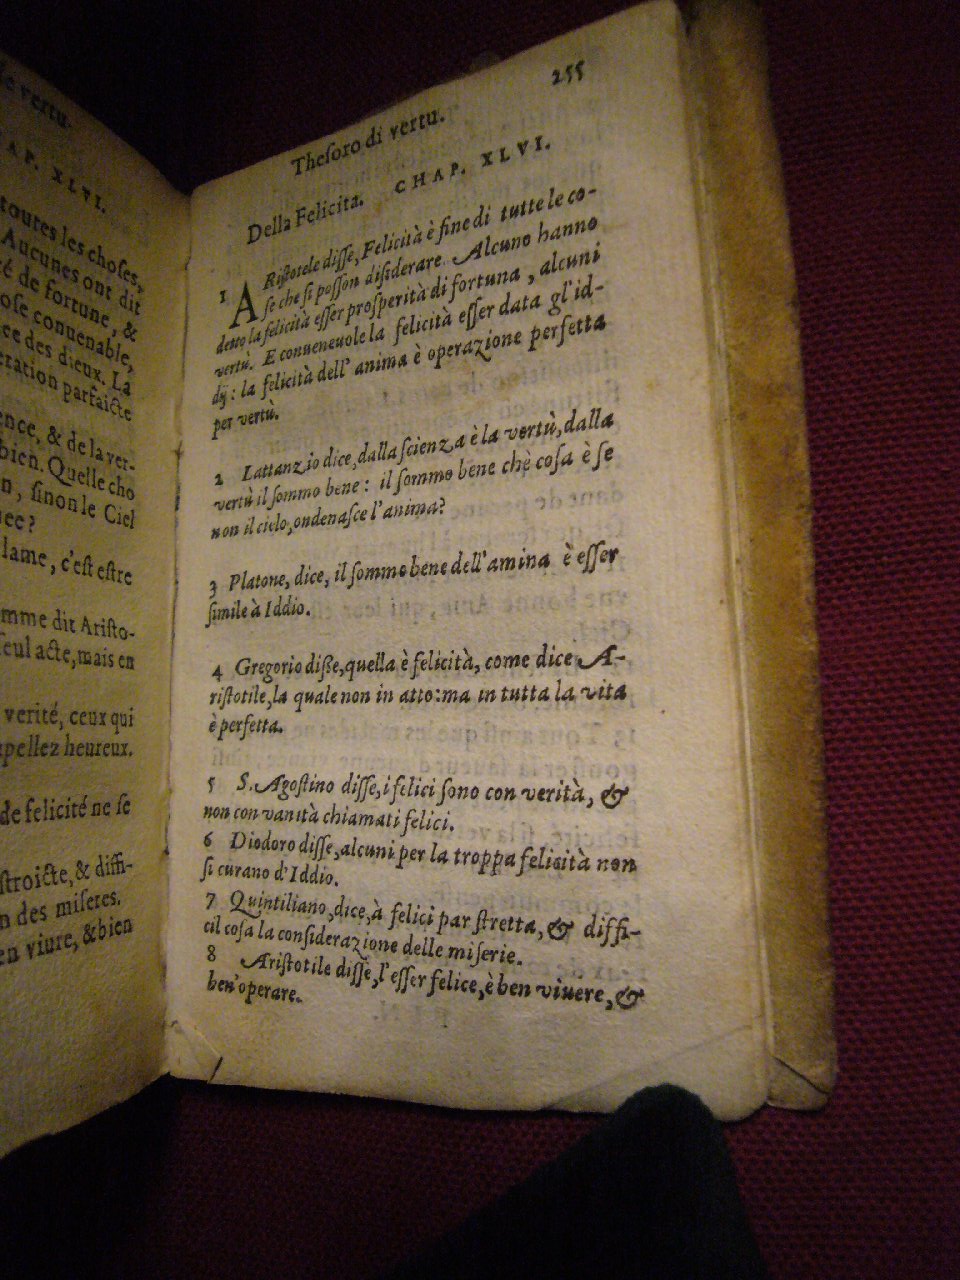 de vertu.
AP. XLVI.
toutes les choses,
Aucunes ont dit
té de fortune, &
ose conuenable,
ce des dieux. La
eration parfaicte
ence, & de la ver-
bien. Quelle cho
n, sinon le Ciel
nee?
lame, c'est estre
mme dit Aristo-
seul acte, mais en
verité, ceux qui
ppellez heureux.
de felicité ne se
stroicte, & diffi-
n des miseres.
en viure, & bien
255
Thesoro di vertu.
Della Felicita. CHAP. XLVI.
1 ARistotele disse, Felicità è fine di tutte le co-
se che si posson disiderare. Alcuno hanno
detto la felicità esser prosperità di fortuna, alcuni
vertù. E conueneuole la felicità esser data gl'id-
dij: la felicità dell'anima è operazione perfetta
per vertù.
2 Lattanzio dice, dalla scienza è la vertù, dalla
vertù il sommo bene: il sommo bene chè cosa è se
non il cielo, onde nasce l'anima?
3 Platone, dice, il sommo bene dell'amina è esser
simile à Iddio.
4 Gregorio disse, quella è felicità, come dice A-
ristotile, la quale non in atto: ma in tutta la vita
è perfetta.
5 S. Agostino disse, i felici sono con verità, &
non con vanità chiamati felici.
6 Diodoro disse, alcuni per la troppa felicità non
si curano d'Iddio.
7 Quintiliano, dice, à felici par stretta, & diffi-
cil cosa la considerazione delle miserie.
8 Aristotile disse, l'esser felice, è ben viuere, &
ben'operare.